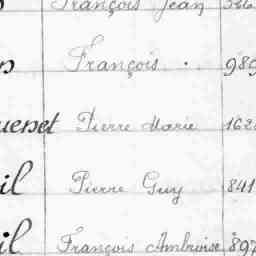 François Jean
François . 989
uenet Pierre Marie 162
il Pierre Guy 841
il François Ambroise 897